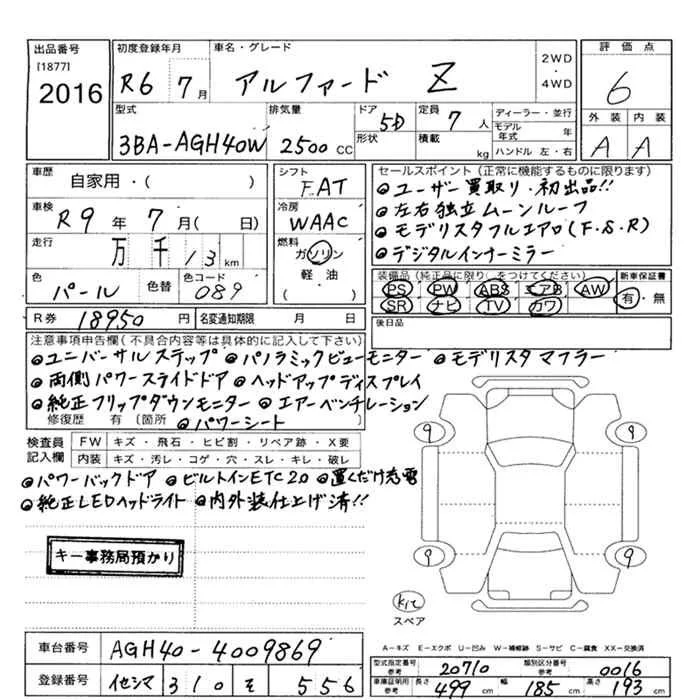 出品番号 [1877] 2016
初度登録年月 R6 7月
車名・グレード アルファード Z
2WD・4WD
評価点 6
型式 3BA-AGH40W
排気量 2500 CC
ドア 5D
形状
定員 7人
積載 kg
ディーラー・並行
モデル年式 年
ハンドル 左・右
外装 内装
A A
車歴 自家用・( )
シフト FAT
セールスポイント(正常に機能するものに限ります)
◎ユーザー買取り・初出品!!
車検 R9年 7月( 日)
冷房 WAAC
◎左右独立ムーンルーフ
◎モデリスタフルエアロ(F.S.R)
走行 万 千 13 km
燃料 ガソリン 軽油 ( )
◎デジタルインナーミラー
色 パール 色替
色コード 089
装備品(純正品に限り○をつけてください) 新車保証書
PS PW ABS エアB AW 有・無
SR ナビ TV カワ
R券 18950円
名変通知期限 月 日
後日品
注意事項申告欄(不具合内容等は具体的に記入して下さい)
◎ユニバーサルステップ ◎パノラミックビューモニター ◎モデリスタマフラー
◎両側パワースライドドア ◎ヘッドアップディスプレイ
◎純正フリップダウンモニター ◎エアーベンチレーション
修復歴 有 〔箇所 ◎パワーシート 〕
検査員記入欄 FW キズ・飛石・ヒビ割・リペア跡・X要
内装 キズ・汚レ・コゲ・穴・スレ・キレ・破レ
◎パワーバックドア ◎ビルトインETC2.0 ◎置くだけ充電
◎純正LEDヘッドライト ◎内外装仕上げ済!!
9 9
9 9
キー事務局預かり
Kit
スペア
A-キズ E-エクボ U-凹み W-補修跡 S-サビ C-腐食 XX-交換済
車台番号 AGH40-4009869
型式指定番号 参考 20710
類別区分番号 参考 0016
登録番号 イセシマ 310 そ 556
車庫証明用参考 長さ 499 cm 幅 185 cm 高さ 193 cm